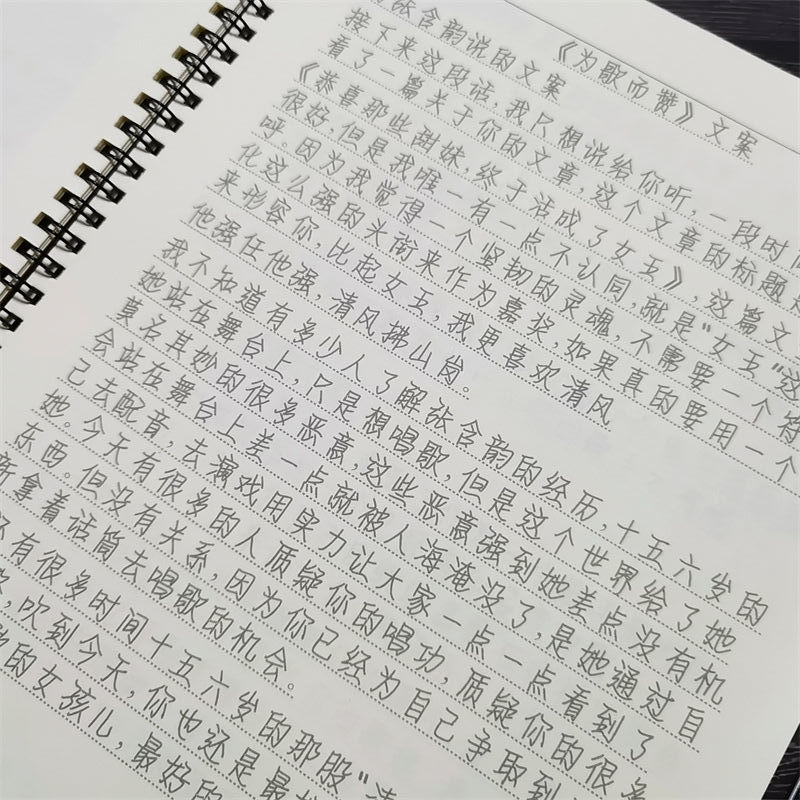 《为歌而赞》文案
张含韵说的文案
接下来这段话,我只想说给你听,一段时
看了一篇关于你的文章,这个文章的标题是
《恭喜那些甜妹,终于活成了女王》,这篇文
很好,但是我唯一有一点不认同,就是“女王”这
呼。因为我觉得一个坚韧的灵魂,不需要一个符
化这么强的头衔来作为嘉奖,如果真的要用一个
来形容你,比起女王,我更喜欢清风
他强任他强,清风拂山岗。
我不知道有多少人了解张含韵的经历,十五六岁的
她站在舞台上,只是想唱歌,但是这个世界给了她
莫名其妙的很多恶意,这些恶意强到她差点没有机
会站在舞台上差一点就被人海淹没了,是她通过自
己去配音,去演戏用实力让大家一点一点看到了
她。今天有很多的人质疑你的唱功,质疑你的很多
东西。但没有关系,因为你已经为自己争取到
新拿着话筒去唱歌的机会。
还有很多时间十五六岁的那股“清
,吹到今天,你也还是最
的女孩儿,最好的